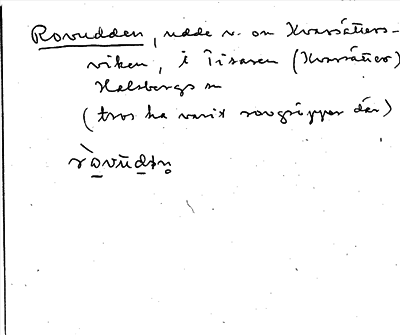 Rovudden, udde v. om Kvarsätters-
viken, i Tisaren (Kvarsätter)
Halsbergs sn
(tros ha varit rovgropar där)